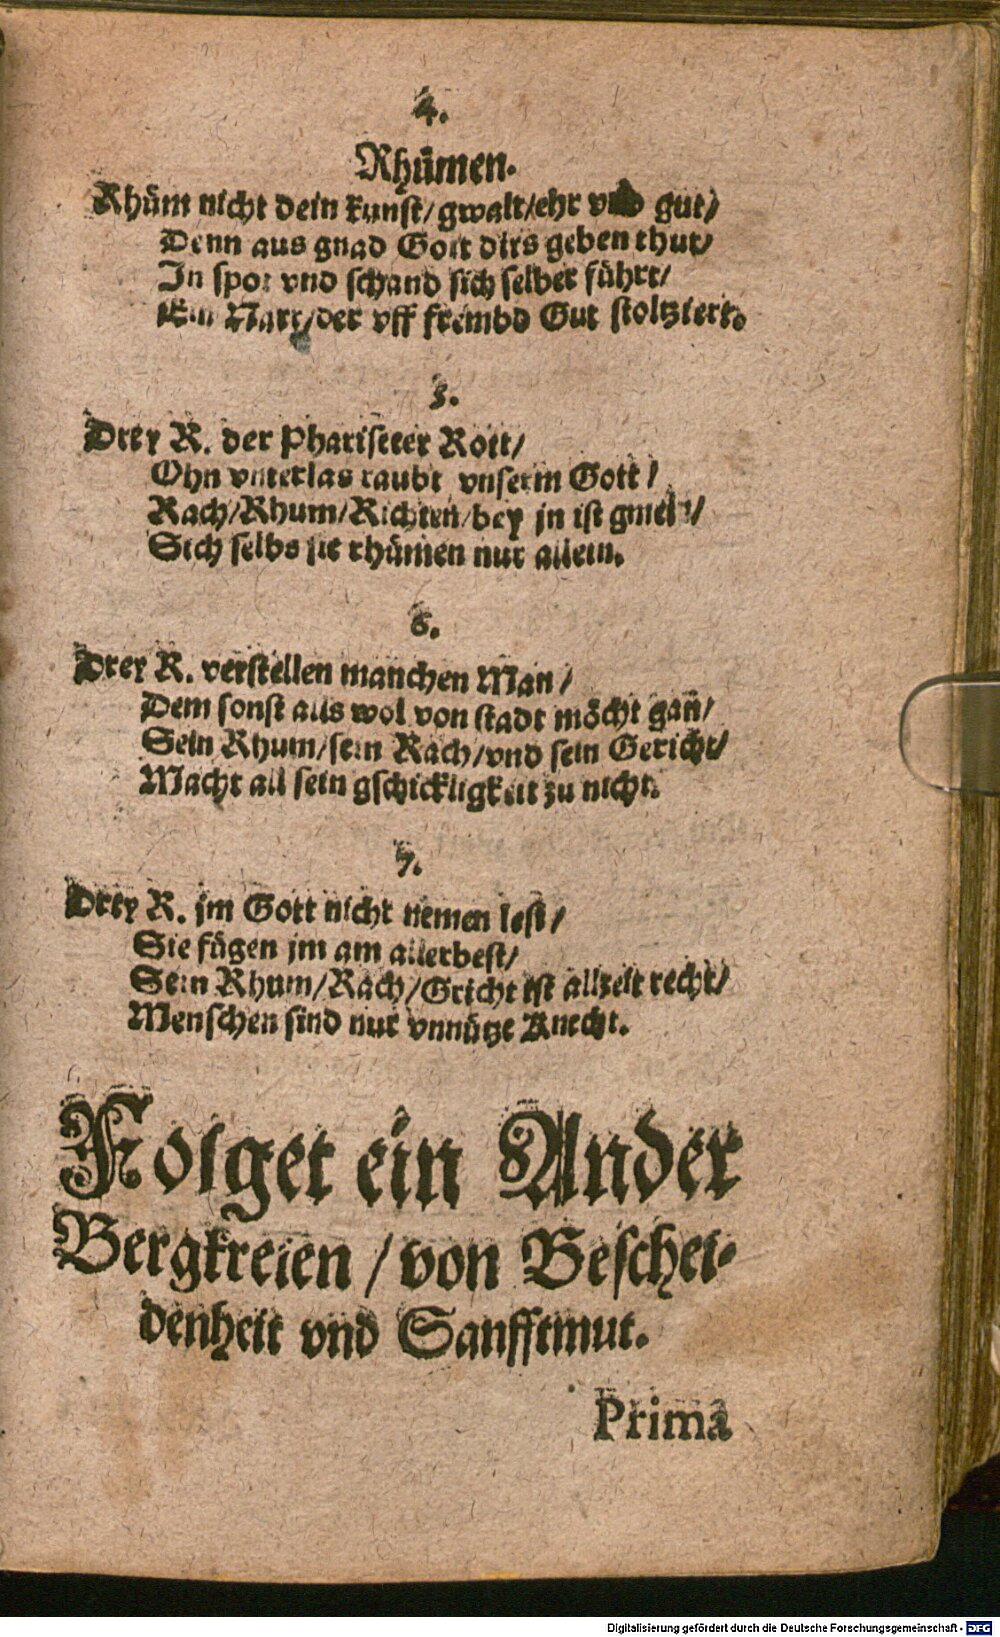 4.
Rhümen.
Rhüm nicht dein kunst/gwalt/ehr vnd gut/
Denn aus gnad Gott dirs geben thut/
In spot vnd schand sich selber führt/
Ein Narr/der vff frembd Gut stoltziert.
5.
Drey R. der Phariseer Rott/
Ohn vnterlas raubt vnserm Gott/
Rach/Rhum/Richten/bey jn ist gmein/
Sich selbs sie rhümen nur allein.
6.
Drey R. verstellen manchen Man/
Dem sonst alls wol von stadt möcht gan/
Sein Rhum/sein Rach/vnd sein Gericht/
Macht all sein gschickligkeit zu nicht.
7.
Drey R. jm Gott nicht nemen lest/
Sie fügen jm am allerbest/
Sein Rhum/Rach/Gricht ist allzeit recht/
Menschen sind nur vnnütze Knecht.
Folget ein Ander
Bergkreien/von Beschei-
denheit vnd Sanfftmut.
Prima
Digitalisierung gefördert durch die Deutsche Forschungsgemeinschaft - DFG